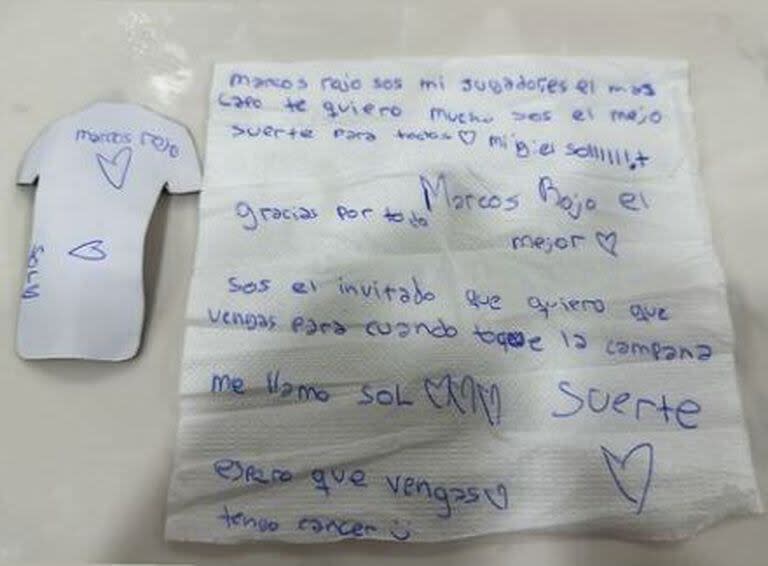 marcos rojo
marcos rojo sos mi jugadores el mas
capo te quiero mucho sos el mejo
suerte para todos ♡
gracias por todo
Marcos Rojo el
mejor ♡
sos el invitado que quiero que
vengas para cuando toque la campana
me llamo SOL ♡♡♡ suerte
espero que vengas ♡
tengo cancer